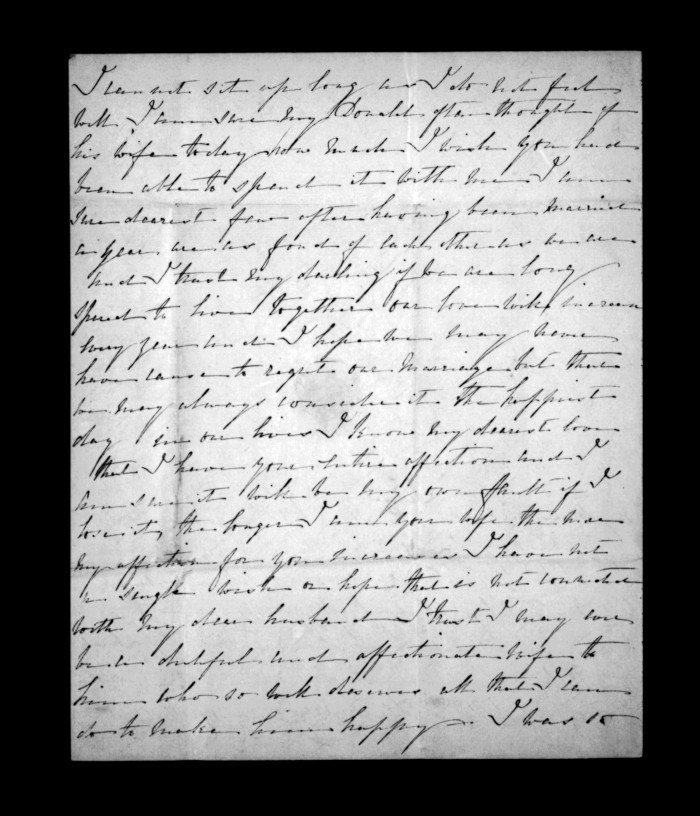 I cannot sit up long as I do not feel
well I am sure my Donald often thought of
his wife today how much I wish you had
been able to spend it with me I am
sure dearest few after having been married
a year are as fond of each other as we are
and I trust my darling if we are long
spared to live together our love will increase
every year and I hope we may never
have cause to regret our marriage but that
we may always consider it the happiest
day in our lives I know my dearest love
that I have your entire affection and I
am sure it will be my own fault if I
lose it, the longer I am your wife the more
my affection for you increases I have not
a single wish or hope that is not connected
with my dear husband I trust I may ever
be a dutiful and affectionate wife to
him who so well deserves all that I can
do to make him happy. I was so